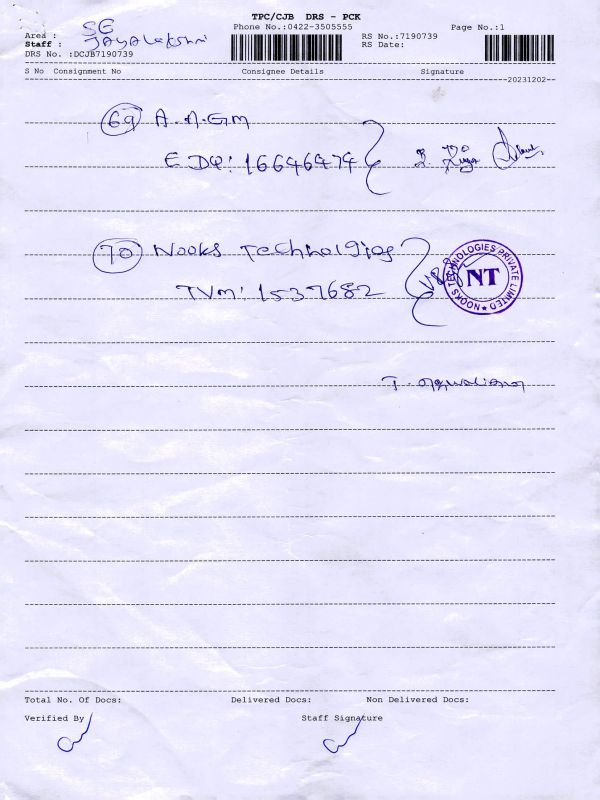 TPC/CJB DRS - PCK
Phone No.:0422-3505555
Page No.:1
Area : SG
Staff : JAYALAKSHMI
DRS No. :DCJB7190739
RS No.:7190739
RS Date:
S No Consignment No Consignee Details Signature
20231202
69 A.N.G.M
EDQ: 16646474
70 Nooks Technolgies
TVM: 1537682
NOOKS TECHNOLOGIES PRIVATE LIMITED
NT
Total No. Of Docs: Delivered Docs: Non Delivered Docs:
Verified By Staff Signature